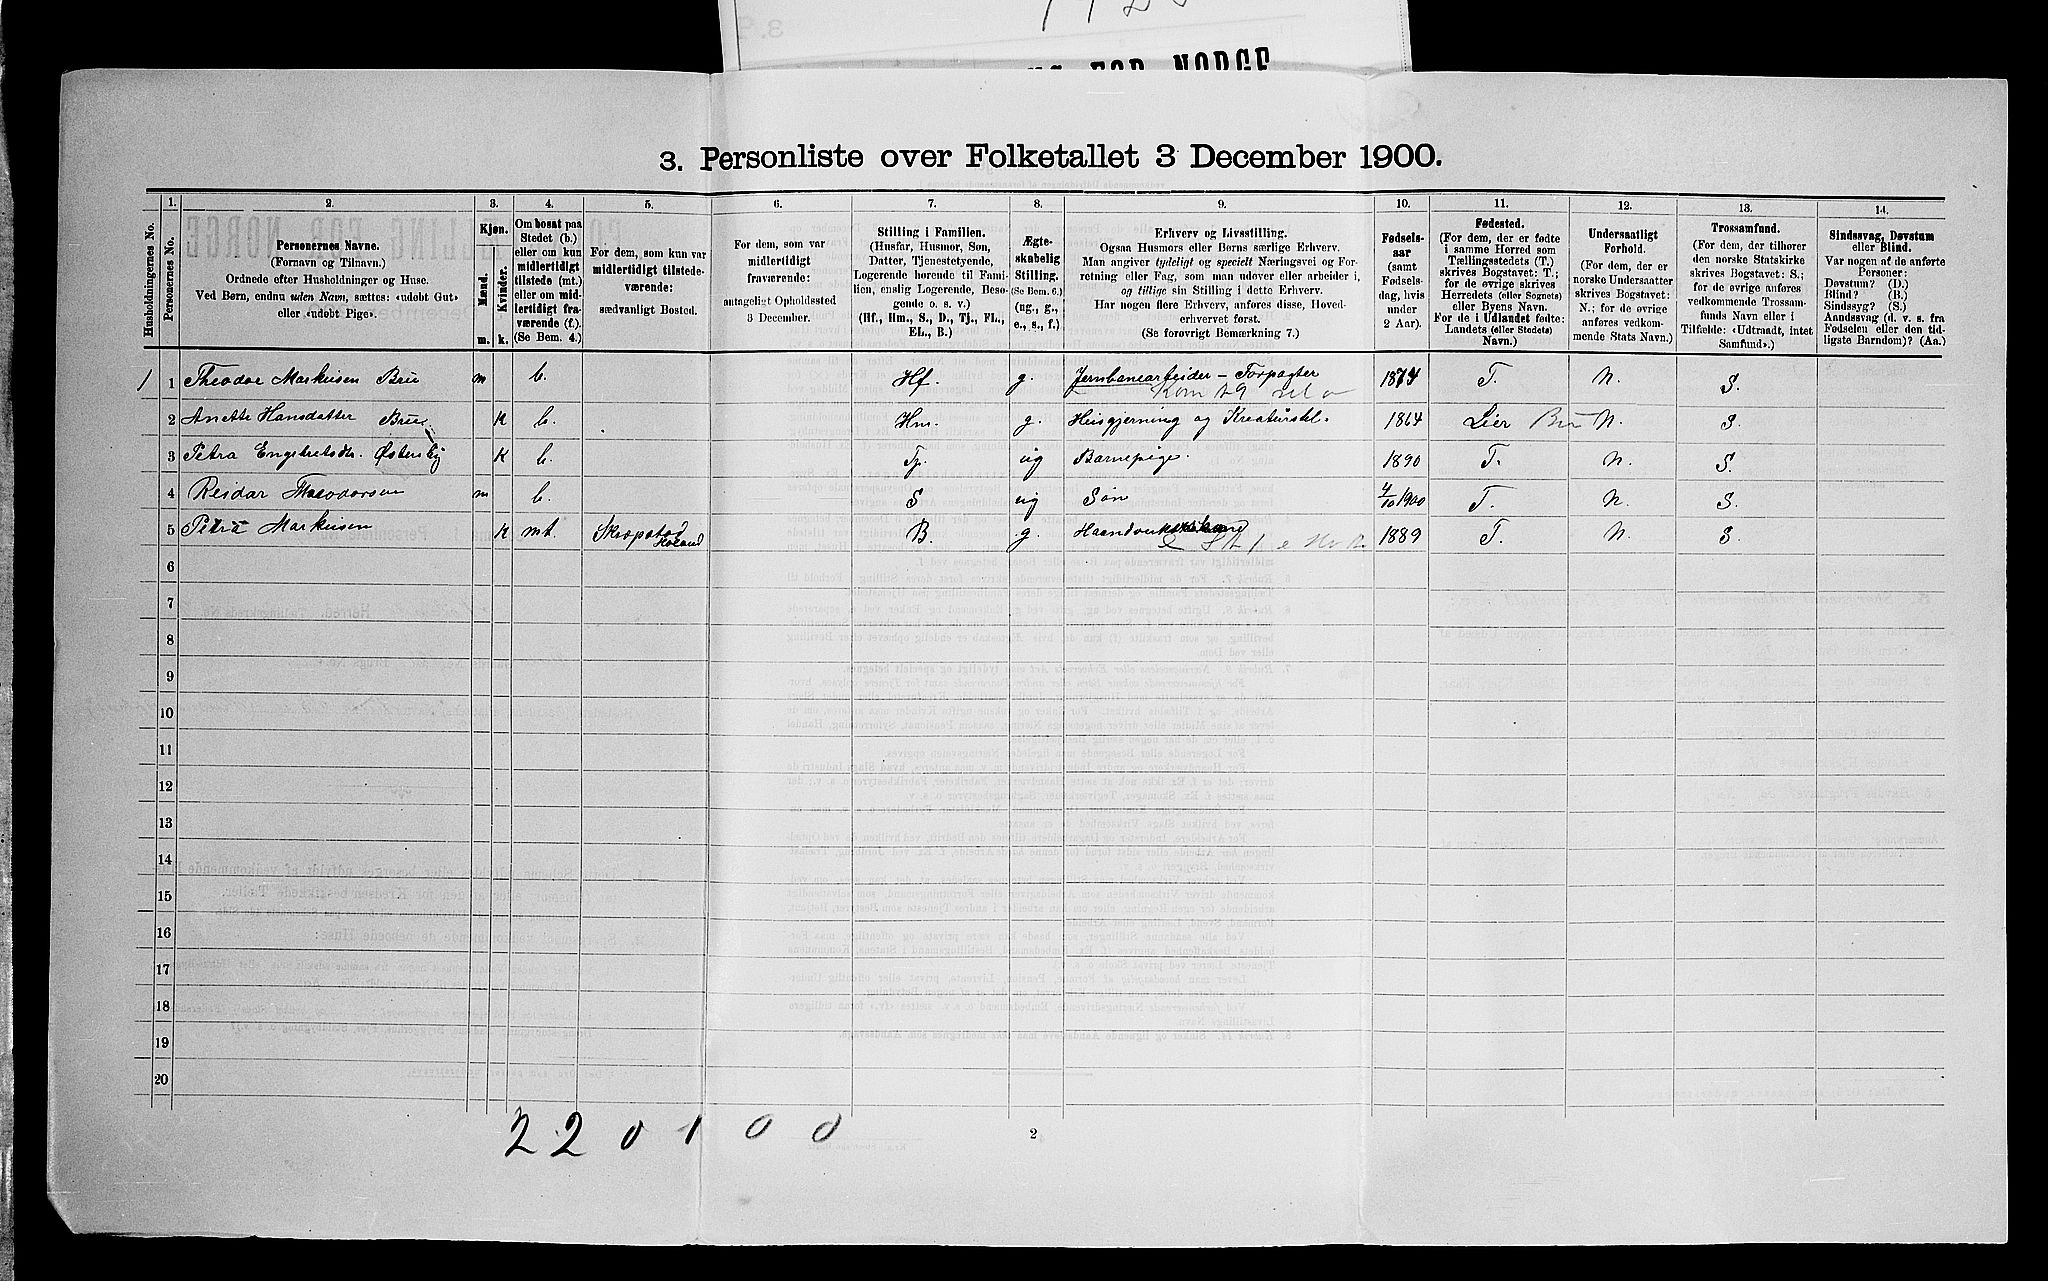 NORGE
3. Personliste over Folketallet 3 December 1900.
1. 2. 3. 4. 5. 6. 7. 8. 9. 10. 11. 12. 13. 14.
Husholdningernes No.
Personernes No.
Personernes Navne.
(Fornavn og Tilnavn.)
Ordnede efter Husholdninger og Huse.
Ved Børn, endnu uden Navn, sættes: «udøbt Gut»
eller «udøbt Pige».
Kjøn.
Mænd.
Kvinder.
m. k.
Om bosat paa
Stedet (b.)
eller om kun
midlertidigt
tilstede (mt.)
eller om mid-
lertidigt fra-
værende (f.)
(Se Bem. 4.)
For dem, som kun var
midlertidigt tilstede-
værende:
sædvanligt Bosted.
For dem, som var
midlertidigt
fraværende:
antageligt Opholdssted
3 December.
Stilling i Familien.
(Husfar, Husmor, Søn,
Datter, Tjenestetyende,
Logerende hørende til Fami-
lien, enslig Logerende, Besø-
gende o. s. v.)
(Hf., Hm., S., D., Tj., FL.,
EL., B.)
Ægte-
skabelig
Stilling.
(Se Bem. 6.)
(ug., g.,
e., s., f.)
Erhverv og Livsstilling.
Ogsaa Husmors eller Børns særlige Erhverv.
Man angiver tydeligt og specielt Næringsvei og For-
retning eller Fag, som man udøver eller arbeider i,
og tillige sin Stilling i dette Erhverv.
Har nogen flere Erhverv, anføres disse, Hoved-
erhvervet først.
(Se forøvrigt Bemærkning 7.)
Fødsels-
aar
(samt
Fødsels-
dag, hvis
under
2 Aar).
Fødested.
(For dem, der er fødte
i samme Herred som
Tællingsstedets (T.)
skrives Bogstavet: T.;
for de øvrige skrives
Herredets (eller Sognets)
eller Byens Navn.
For de i Udlandet fødte:
Landets (eller Stedets)
Navn.)
Undersaatligt
Forhold.
(For dem, der er
norske Undersaatter
skrives Bogstavet:
N.; for de øvrige
anføres vedkom-
mende Stats Navn.)
Trossamfund.
(For dem, der tilhører
den norske Statskirke
skrives Bogstav: S.;
for de øvrige anføres
vedkommende Trossam-
funds Navn eller i
Tilfælde: «Udtraadt, intet
Samfund».)
Sindssvag, Døvstum
eller Blind.
Var nogen af de anførte
Personer:
Døvstum? (D.)
Blind? (B.)
Sindssyg? (S.)
Aandssvag (d. v. s. fra
Fødselen eller den tid-
ligste Barndom)? (Aa.)
1 1 Theodor Markusen Bru m b. Hf. g. Jernbanearbeider - Forpagter 1874 T. N. S.
2 Anette Hansdatter Bru K b. Hm. g. Husgjerning og Kreaturstel. 1864 Lier N. S.
3 Petra Engebretsdtr. Østensby K b. Tj. ug Barnepige. 1890 T. N. S.
4 Reidar Theodorsen m b. S ug Søn 4/10 1900 T. N. S.
5 Petra Markusen K mt. Skopstad B. g. 1889 T. N. S.
6
7
8
9
10
11
12
13
14
15
16
17
18
19
20
2 2 0 1 0 0
2